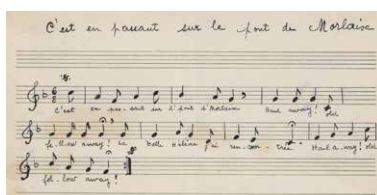 C'est en passant sur le pont de Morlaix
C'est en pas-sant sur l'pont d'Morlaix Haul away! old
fe-llow away! La belle Hélène j'ai ren-con-trée. Haul a-way! old
fel-low away!